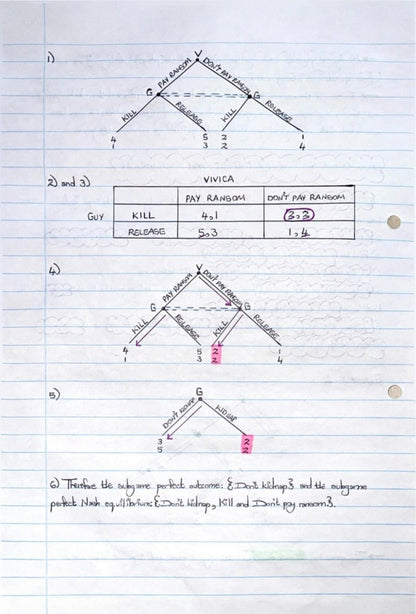 1)
V
PAY RANSOM DON'T PAY RANSOM
G G
KILL RELEASE KILL RELEASE
4 5 2 1
1 3 2 4
2) and 3)
VIVICA
PAY RANSOM DON'T PAY RANSOM
GUY KILL 4,1 2,2
RELEASE 5,3 1,4
4)
V
PAY RANSOM DON'T PAY RANSOM
G G
KILL RELEASE KILL RELEASE
4 5 2 1
1 3 2 4
5)
G
DON'T KIDNAP KIDNAP
3 2
5 2
6) Therefore the subgame perfect outcome: {Don't kidnap} and the subgame
perfect Nash equilibrium: {Don't kidnap, Kill and Don't pay ransom}.